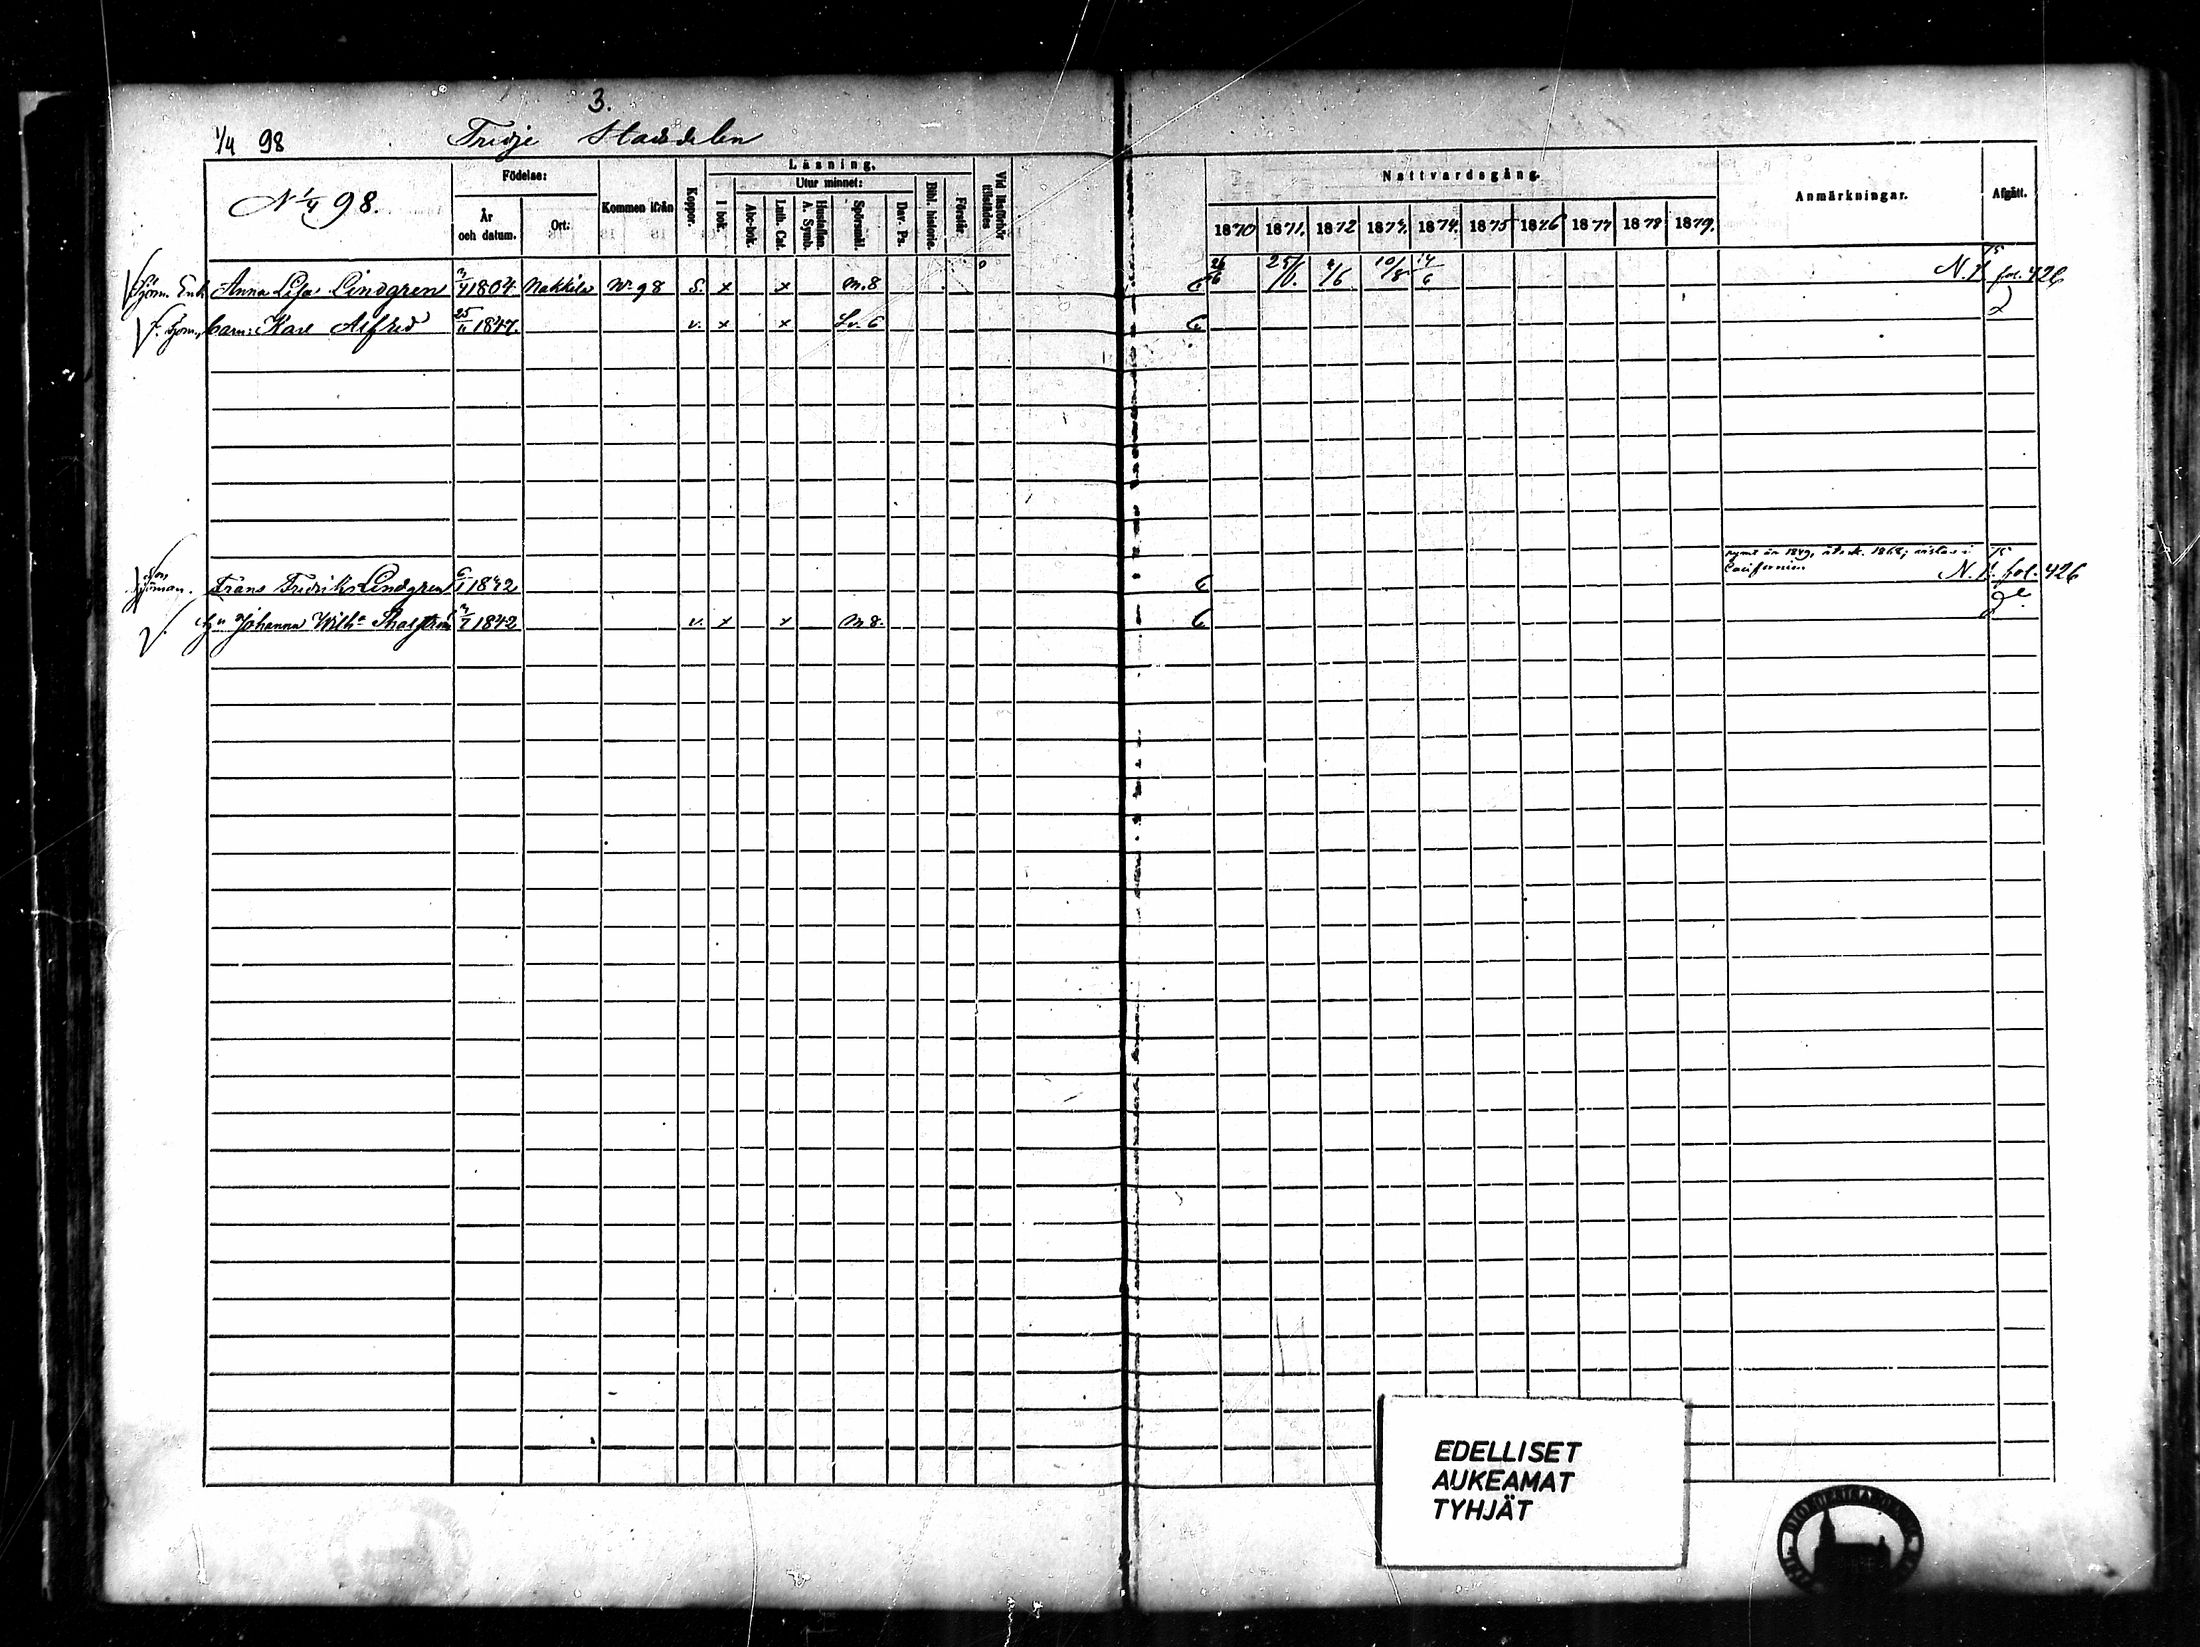 3.
1/4 98 Tredje Stadsdelen
N 1/4 98.
Födelse:
År och datum.
Ort:
Kommen ifrån
Koppor.
Läsning.
I bok.
Utur minnet:
Abc-bok.
Luth. Cat.
Hustaflan. A. Symb.
Spörsmål.
Dav. Ps.
Bibl. historie.
Förstår.
Vid läsförhör tillstädes
Nattvardsgång.
1870 1871. 1872 1873. 1874. 1875 1876 1877 1878 1879.
Anmärkningar.
Afgått.
Sjöm. Enk. Anna Lisa Lindgren 1804 Nakkila No 98 S. x x m.8 26/6 25/6. 4/6 10/8 14/6 N. 1. fol. 426
barn: Karl Alfred 25/11 1847. v. x x Lv. 6
rymt år 1869, 1868, vistas i
Californien
Sjöman. Frans Fredrik Lindgren 6/1 1842 N. 1. fol. 426
Johanna Wilh:a 1842 v. x x m 8.
EDELLISET
AUKEAMAT
TYHJÄT